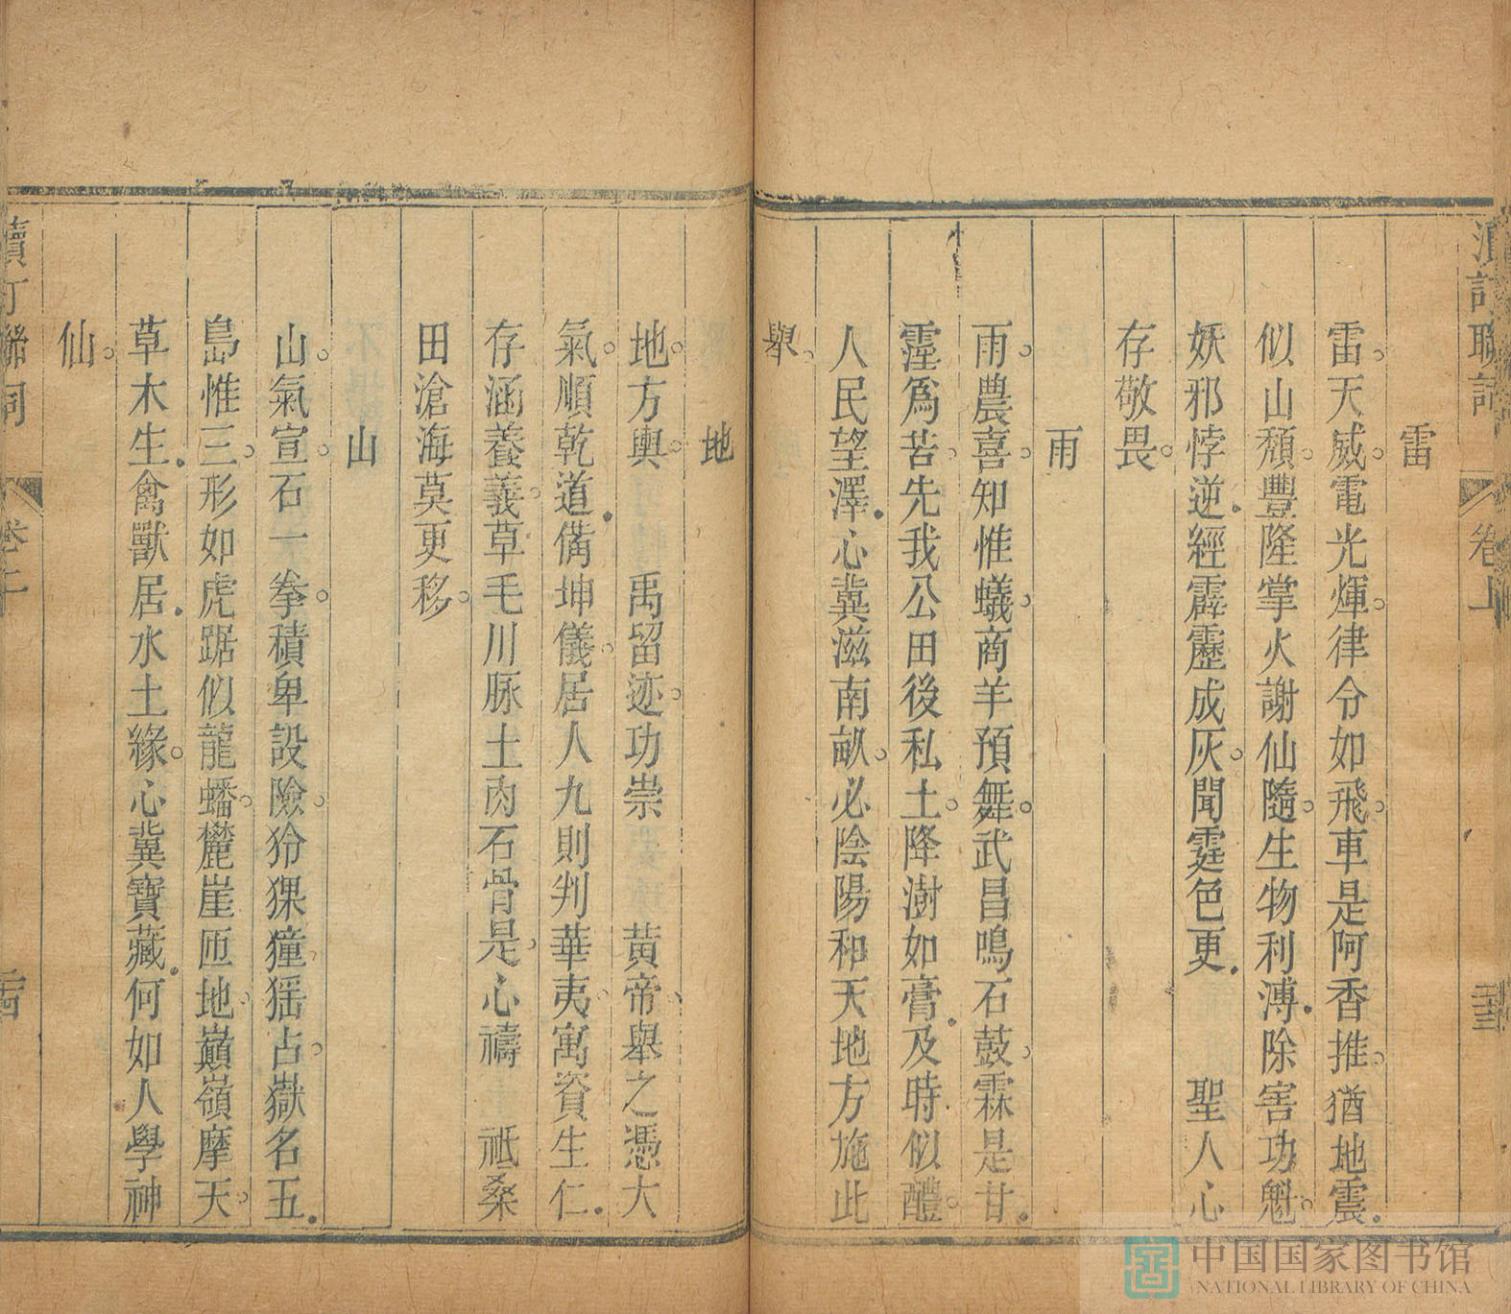 雷
雷天威電光煇律令如飛車是阿香推猶地震
似山頽豐隆掌火謝仙隨生物利溥除害功魁
妖邪悖逆經霹靂成灰聞霆色更 聖人心
存敬畏
雨
雨農喜知惟蟻商羊預舞武昌鳴石鼓霖是甘
霪爲苦先我公田後私土降澍如膏及時似醴
人民望澤心冀滋南畝必陰陽和天地方施此
舉
地
地方輿 禹留迹功崇 黃帝舉之憑大
氣順乾道備坤儀居人九則判華夷寓資生仁
存涵養義草毛川脉土肉石骨是心禱 祗桑
田滄海莫更移
山
山氣宣石一拳積卑設險狑猓獞猺占嶽名五
島惟三形如虎踞似龍蟠麓崖匝地巔嶺摩天
草木生禽獸居水土緣心冀寶藏何如人學神
仙
卷上
中国国家图书馆
NATIONAL LIBRARY OF CHINA